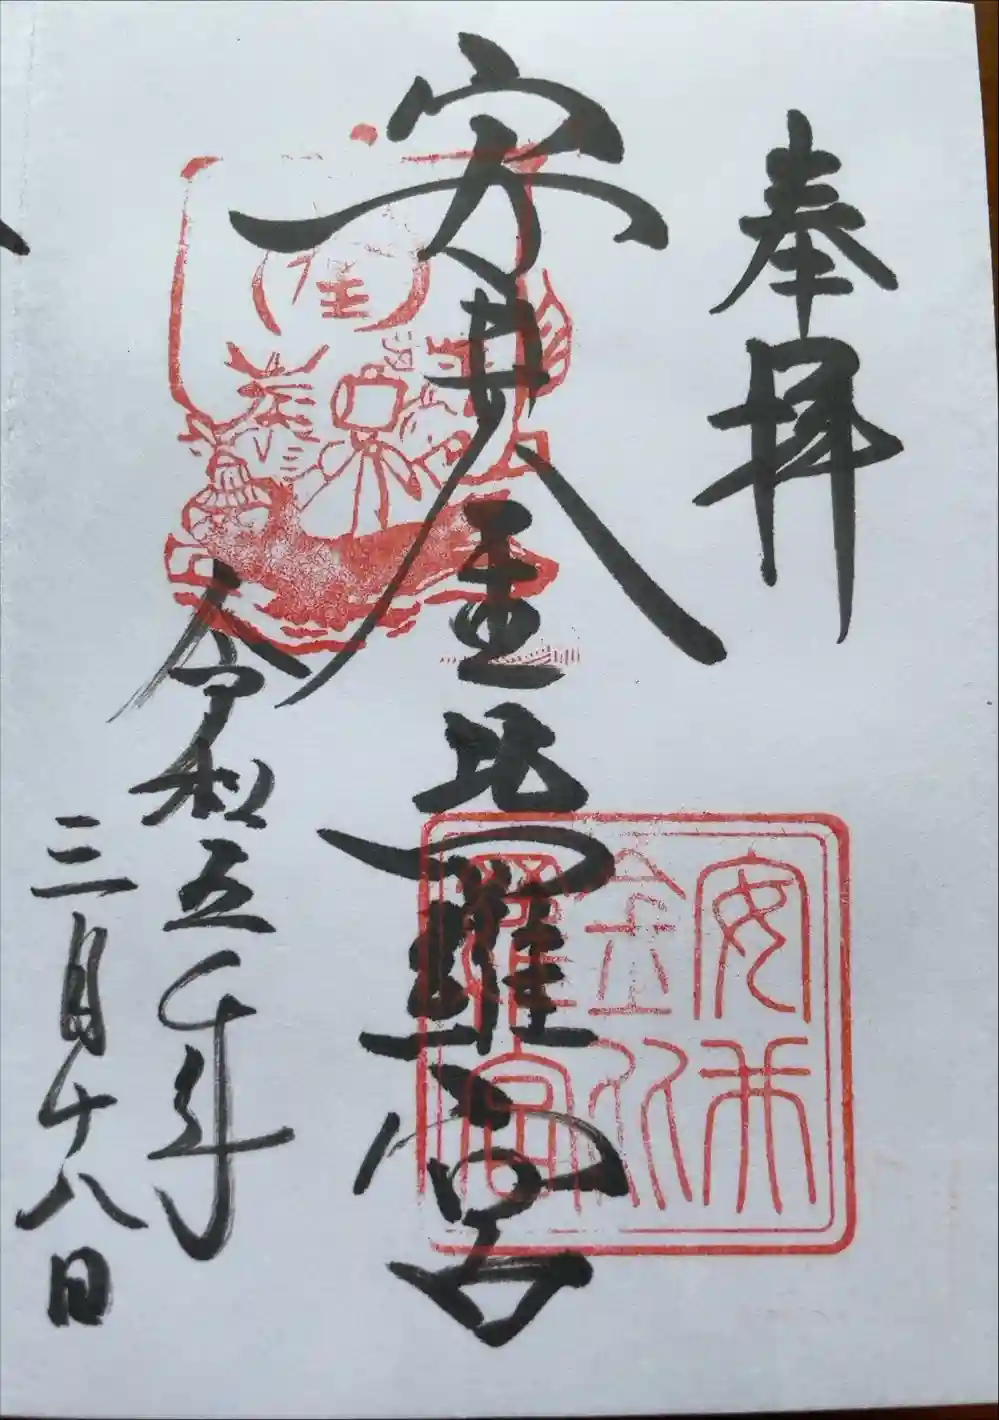 奉拝
安井金比羅宮
令和五年
三月十八日
安井
金比
羅宮